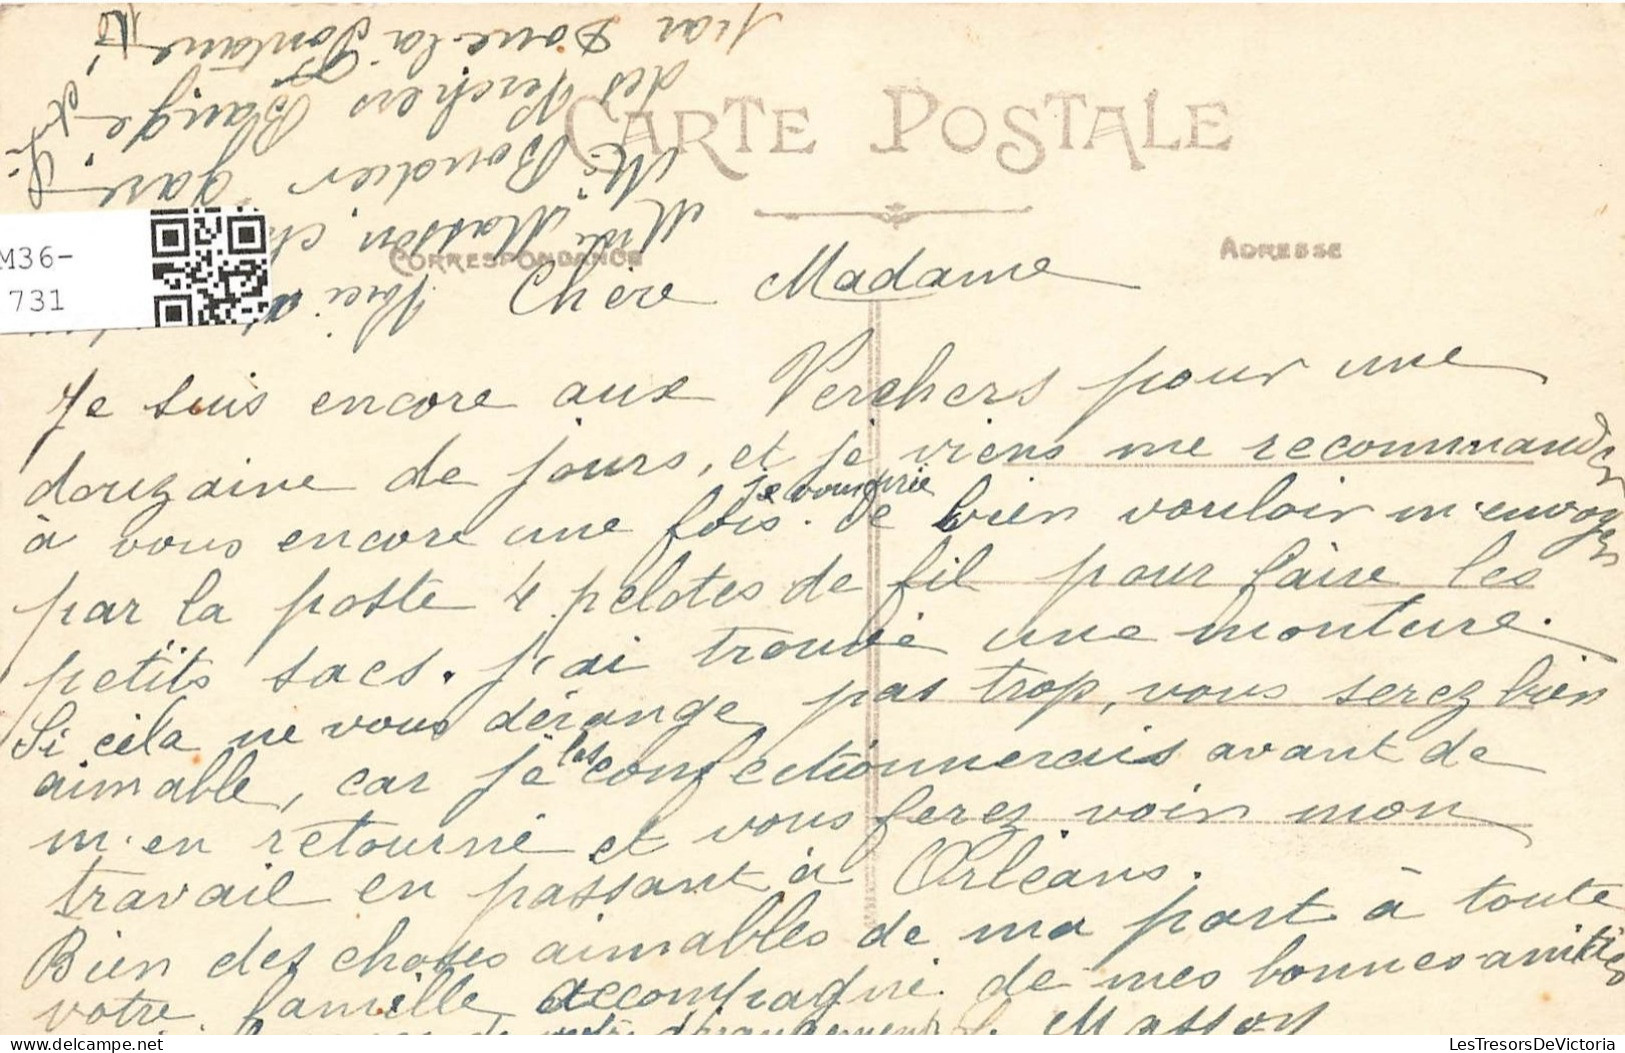 CARTE POSTALE
CORRESPONDANCE
ADRESSE
M36-
731
Chère Madame
Je suis encore aux Verchers pour une
douzaine de jours, et je viens me recommander
à vous encore une fois. je vous prie de bien vouloir m'envoyer
par la poste 4 pelotes de fil pour faire les
petits sacs. j'ai trouvé une monture.
Si cela ne vous dérange pas trop, vous serez bien
aimable, car je les confectionnerais avant de
m'en retourné et vous ferez voir mon
travail en passant à Orléans.
Bien des choses aimables de ma part à toute
votre famille accompagné de mes bonnes amitiés
de votre dérangement Masson
Voici
Mde Masson, ch
Mr Boudier gare
des Verchers Bauge
par Doué-la-Fontaine
LesTresorsDeVictoria